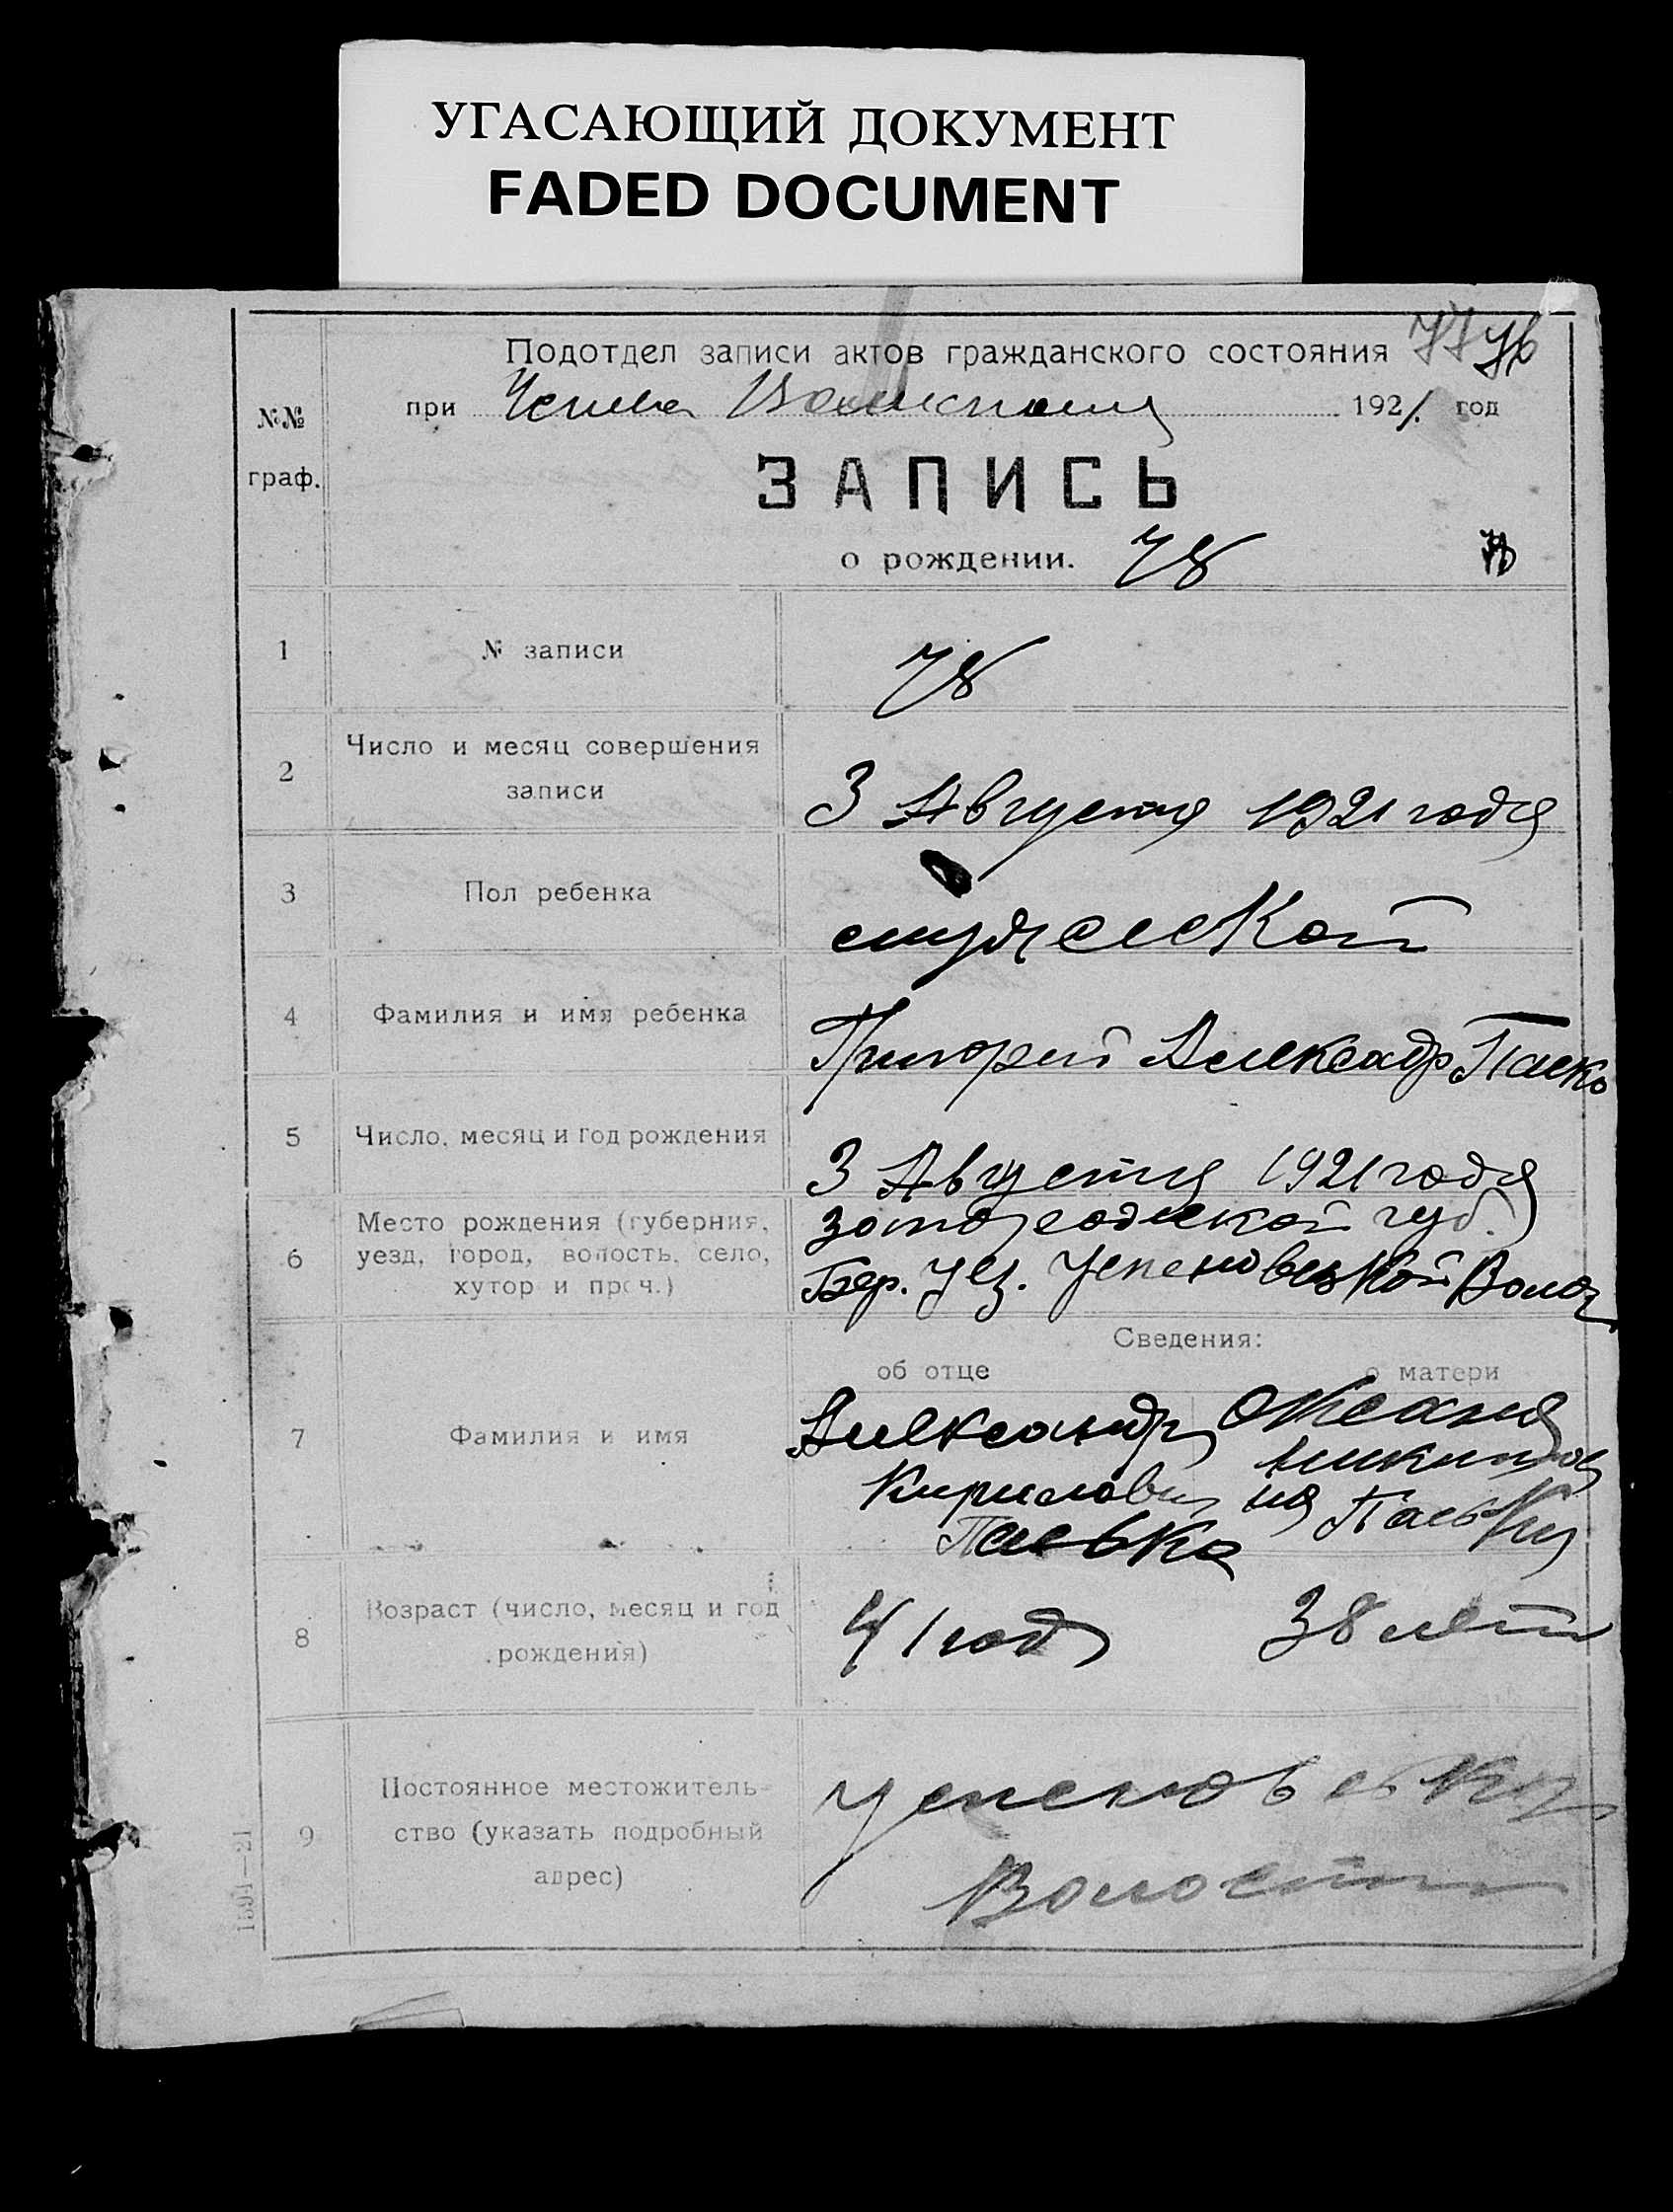 УГАСАЮЩИЙ ДОКУМЕНТ
FADED DOCUMENT
Подотдел записи актов гражданского состояния
при 1921. год
№№ граф.
ЗАПИСЬ
о рождении. 78
1 № записи 78
2 Число и месяц совершения
записи
3 Августа 1921 года
3 Пол ребенка
мужеской
4 Фамилия и имя ребенка
Григорий Александр
5 Число, месяц и год рождения
3 Августа 1921 года
6 Место рождения (губерния,
уезд, город, волость, село,
хутор и проч.)
губ.
Бер. Уез. Успеновської Волос
Сведения:
об отце о матери
7 Фамилия и имя
Александр
Кирилович
Палька
Оксана
Никитов
на Палька
8 Возраст (число, месяц и год
рождения)
41 год 38 лет
9 Постоянное местожитель-
ство (указать подробный
адрес)
Волости
1591—21